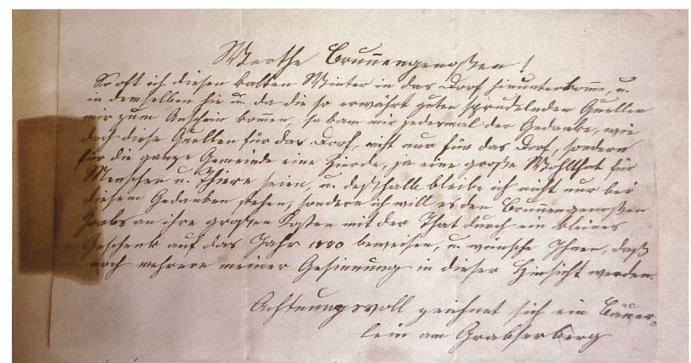 Werthe Brunnengenoßen!
So oft ich diesen kalten Winter in das Dorf hinunterkomme, u.
in demselben hie u. da die so erwährt guten sprudelnden Quellen
mir zum Anschein kommen, so kam mir jedesmal der Gedanke, wie
doch diese Quellen für das Dorf, nicht nur für das Dorf, sondern
für die ganze Gemeinde eine Zierde, ja eine große Wohlthat für
Menschen u. Thiere seien, u. deßhalb bleibe ich nicht nur bei
diesem Gedanken stehen, sondern ich will es den Brunnengenoßen
Grabs an ihre großen Kosten mit der That durch ein kleines
Geschenk auf das Jahr 1880 beweisen, u. wünsche Ihnen, daß
noch mehrere meiner Gesinnung in dieser Hinsicht werden.
Achtungsvoll zeichnet sich ein Bäuer-
lein am Grabserberg